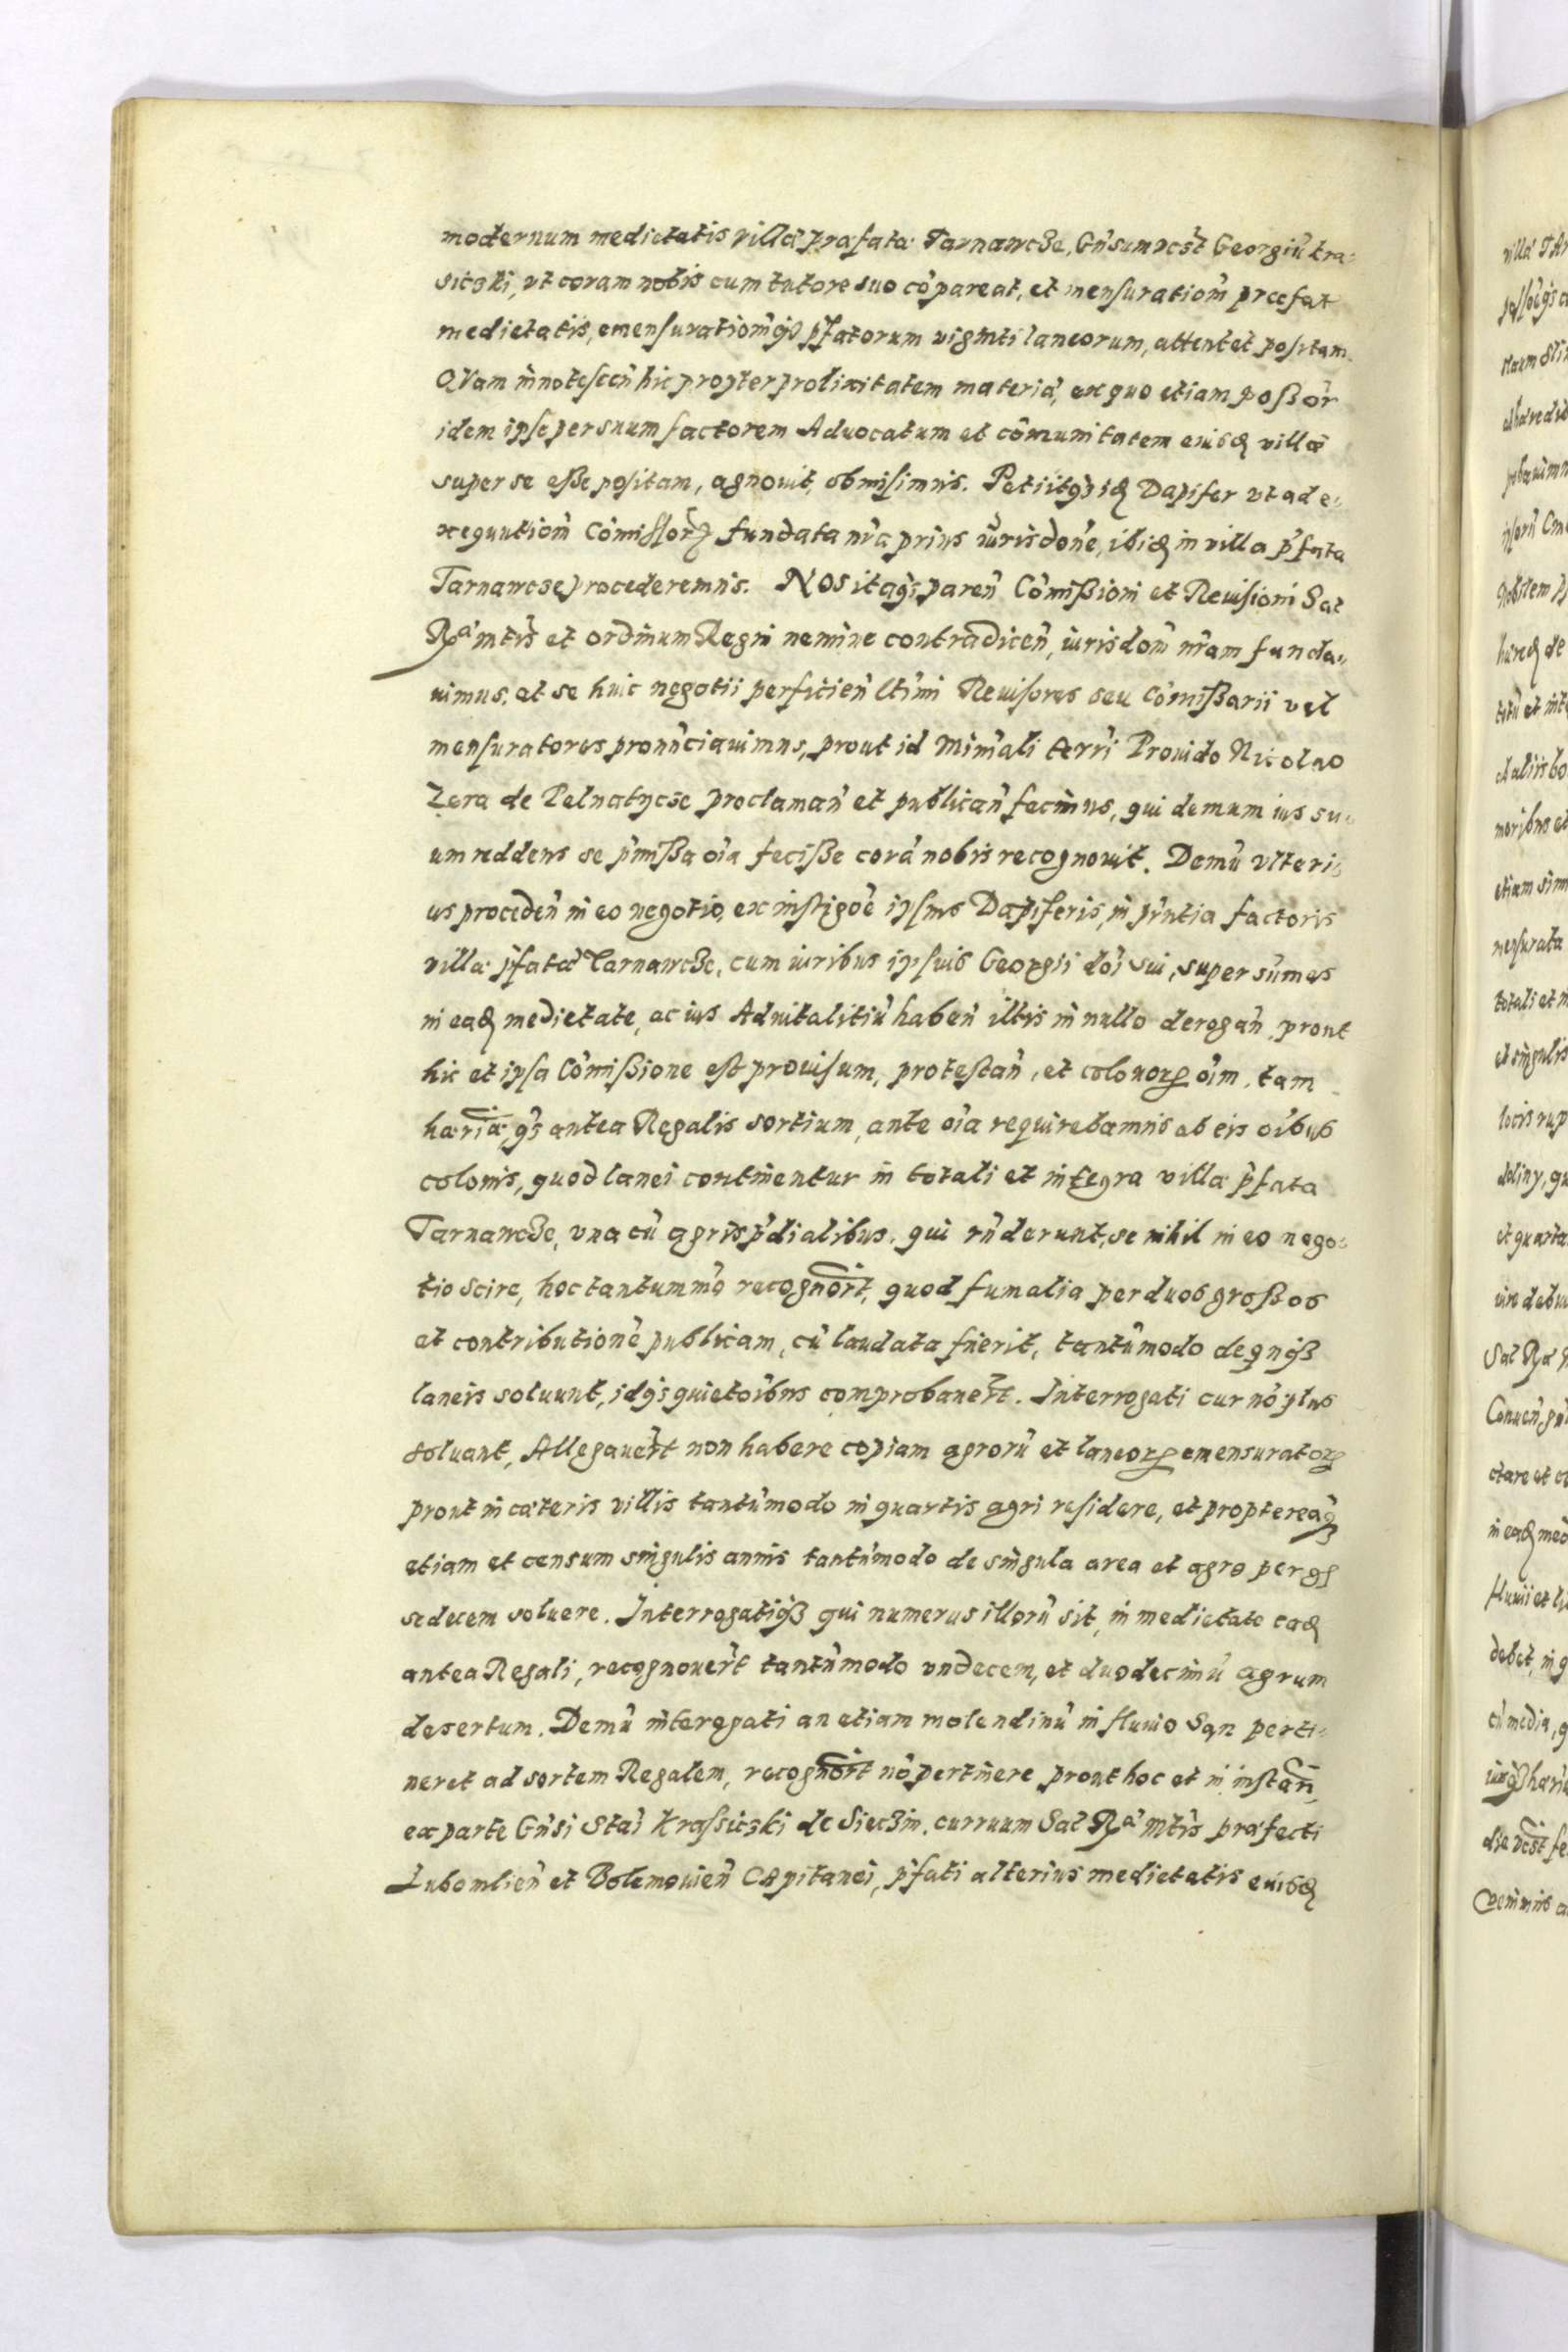 modernum medietatis villæ præfatæ Tarnawcze, Gn̄sum vc̄st Georgiū kra-
siczki, vt coram nobis cum tutore suo cōpareat, et mensurationē præfat
medietatis, emensurationēqȝ p̄fatorum viginti laneorum, attentet positam.
QVam innotescen̄ hic propter prolixitatem materiæ, ex quo etiam poßor
idem ipse per suum factorem Aduocatum et cōmunitatem eiusd villæ
super se eße positam, agnouit, obmisimus. Petiitqȝ id Dapifer vt ad e-
xequutionē Cōmissor fundata nr̄a prius iurisdone, ibid in villa p̄fata
Tarnawcze procederemus. NOS itaqȝ paren̄ Cōmißioni et Reuisioni Sac
Ræ mtis et ordinum Regni nemine contradicen̄, iurisdon̄ nr̄am funda-
uimus, et se huic negotii perficien̄ ltimi Reuisores seu Cōmißarii vel
mensuratores pronūnciauimus, prout id Min̄iali terr̄i Prouido Nicolao
Zera de Pelnatycze proclaman̄ et publican̄ fecimus, qui demum ius su-
um reddens se p̄mißa oīa feciße corā nobis recognouit. Demū vlteri-
us proceden̄ in eo negotio, ex instigōe ipsius Dapiferis, in p̄ntia factoris
villæ p̄fatæ Tarnawcze, cum iuribus ipsius Georgii dōi sui, super sūmas
in ead medietate, ac ius Aduitalitiū haben̄ illis in nullo derogan̄, prout
hic et ipsa Cōmißione est prouisum, protestan̄, et colonor oīm, tam
hæriæ qȝ antea Regalis sortium, ante oīa requirebamus ab eis oībus
colonis, quod lanei continentur in totali et integra villa p̄fata
Tarnawcze, vna cū agris p̄dialibus, qui rn̄derunt, se nihil in eo nego-
tio scire, hoc tantummo recognort, quod fumalia per duos großos
et contributionē publicam, cū laudata fuerit, tantūmodo de qnqȝ
laneis soluunt, idqȝ quietoībus comprobauert. Interrogati cur nō plus
soluant, Allegauert non habere copiam agrorū et laneor emensurator
prout in cæteris villis tantūmodo in quartis agri residere, et propterea
etiam et censum singulis annis tantūmodo de singula area et agro per gs
sedecem soluere. Interrogatiqȝ qui numerus illorū sit, in medietate ead
antea Regali, recognouert tantūmodo vndecem, et duodecimū agrum
desertum. Demū interogati an etiam molendinū in fluuio San perti-
neret ad sortem Regalem, recognort nō pertinere prout hoc et in instan̄,
ex parte Gn̄si Stai Krasiczki de Sieczin, curruum Sac Ræ Mtis præfecti
Lubomlien̄ et Bolemouien̄ Capitanei, p̄fati alterius medietatis eiusd